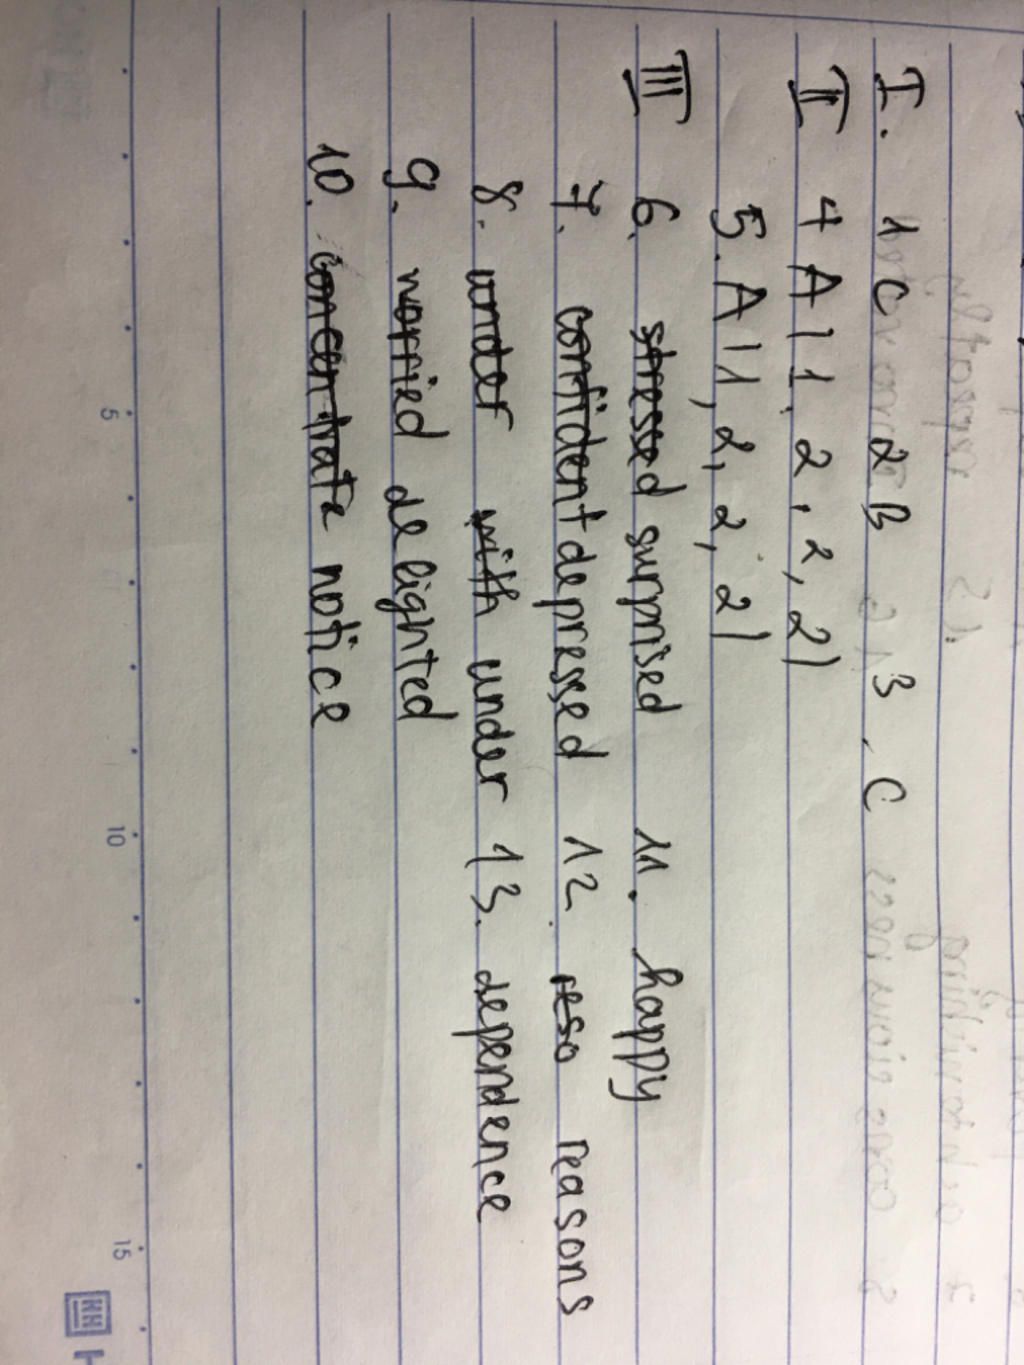 I. 1 C 2 B 3. C
II 4 A | 1. 2, 2, 2 |
5. A | 1, 2, 2, 2 |
III 6. stressed surprised 11. happy
7. confident depressed 12. reso reasons
8. under with under 13. dependence
9. worried delighted
10. concentrate notice
5 10 15